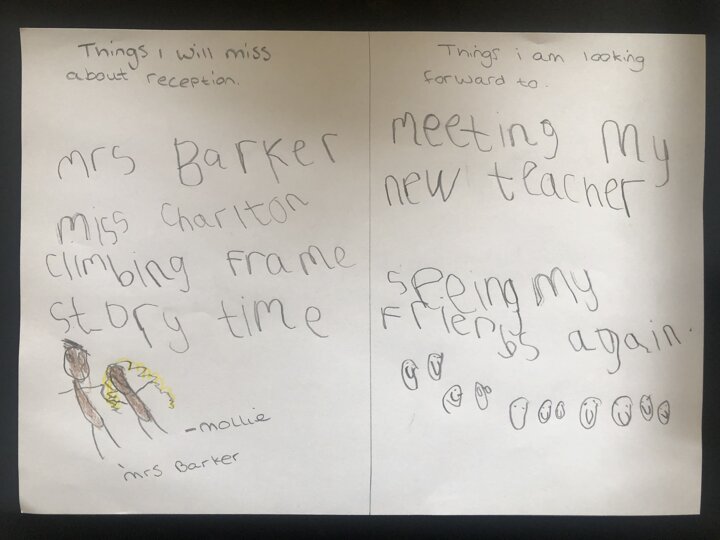 Things i will miss
about reception.
mrs Barker
miss Charlton
climbing frame
story time
-mollie
mrs Barker
Things i am looking
forward to.
meeting my
new teacher
seeing my
Friends again.